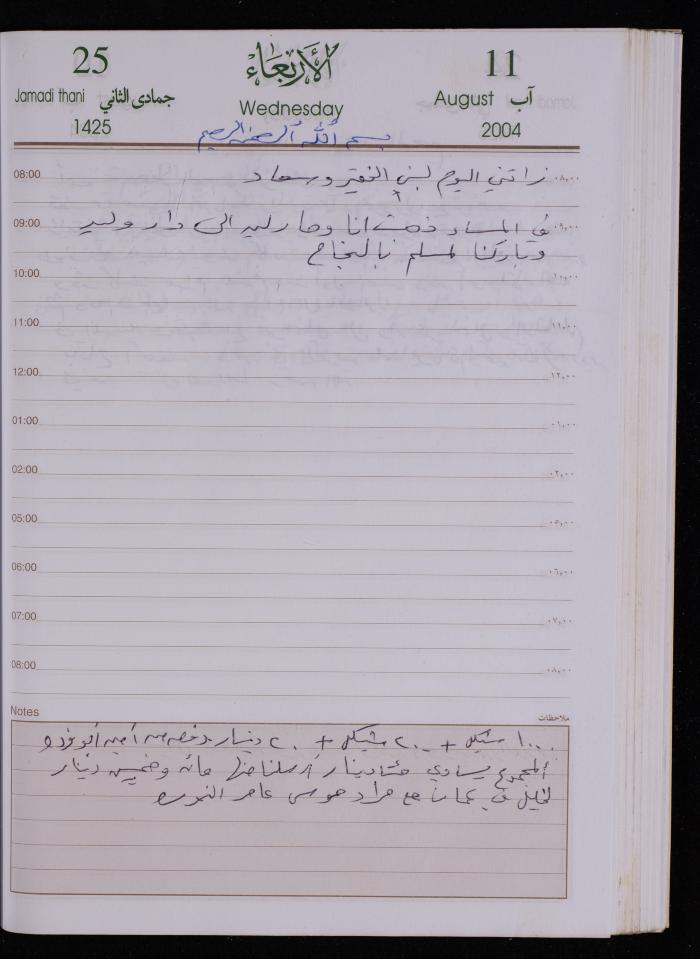 25 الأربعاء 11
Jamadi thani جمادى الثاني Wednesday August آب
1425 2004
بسم الله الرحمن الرحيم
08:00 زارتني اليوم لبنى الفقير وسعاد ٠٨,٠٠
09:00 في المساء ذهبت انا وخليل الى دار وليد ٠٩,٠٠
وباركنا لمسلم بالنجاح
10:00 ١٠,٠٠
11:00 ١١,٠٠
12:00 ١٢,٠٠
01:00 ٠١,٠٠
02:00 ٠٢,٠٠
05:00 ٠٥,٠٠
06:00 ٠٦,٠٠
07:00 ٠٧,٠٠
08:00 ٠٨,٠٠
Notes ملاحظات
١٠٠٠ شيكل + ٢٠٠ شيكل + ٢٠ دينار من
المجموع يساوي مئتا دينار أرسلنا منها مائه وخمسين دينار
لخليل في عمان مع مراد موسى عامر